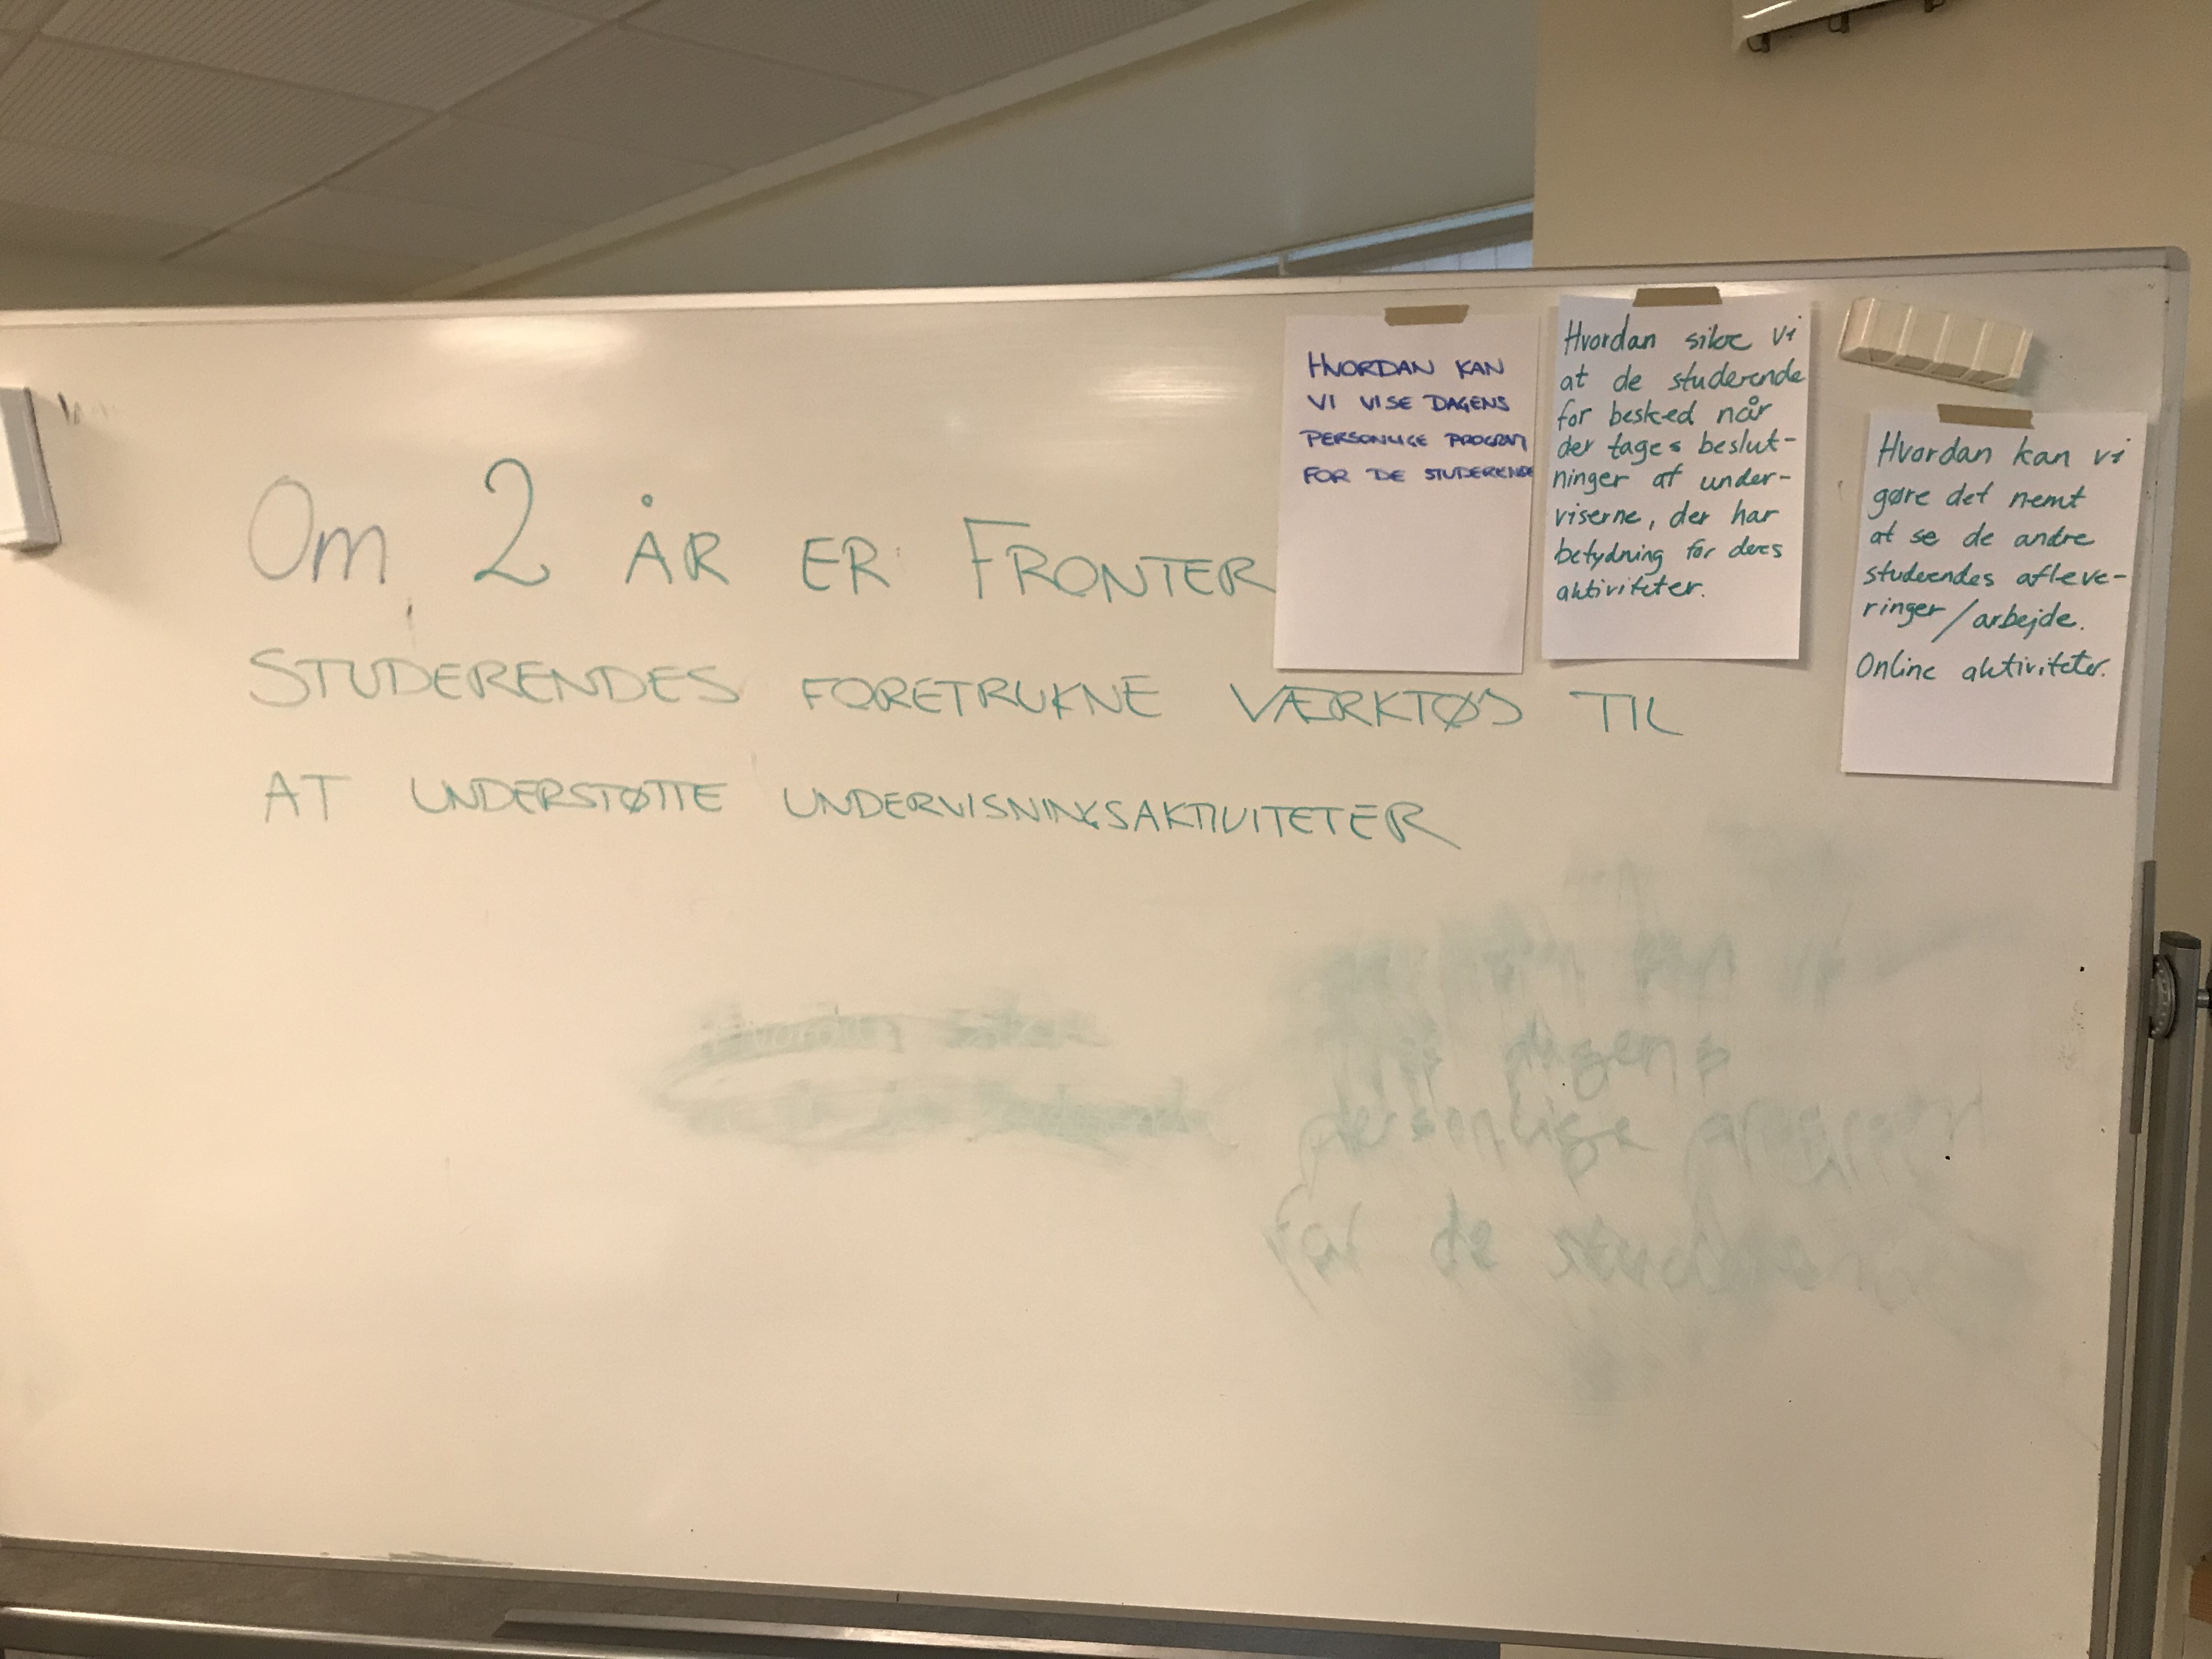 Om 2 ÅR ER FRONTER
STUDERENDES FORETRUKNE VÆRKTØJ TIL
AT UNDERSTØTTE UNDERVISNINGSAKTIVITETER
HVORDAN KAN
VI VISE DAGENS
PERSONLIGE PROGRAM
FOR DE STUDERENDE
Hvordan sikre vi
at de studerende
for besked når
der tages beslut-
ninger af under-
viserne, der har
betydning for deres
aktiviteter.
Hvordan kan vi
gøre det nemt
at se de andre
studerendes afleve-
ringer/arbejde.
Online aktiviteter.
dagens
personlige
for de